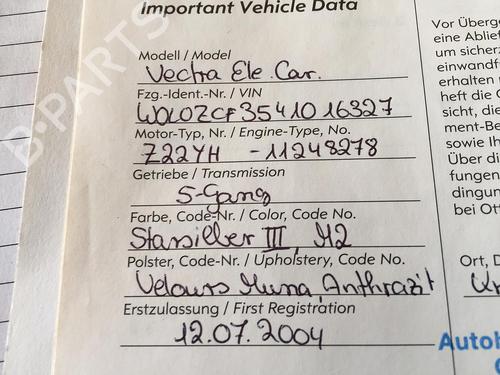 Important Vehicle Data
Modell / Model
Vectra Ele. Car.
Fzg.-Ident.-Nr. / VIN
W0L0ZCF3541016327
Motor-Typ, Nr. / Engine-Type, No.
Z22YH -11248278
Getriebe / Transmission
5-Gang
Farbe, Code-Nr. / Color, Code No.
Starsilber III, M2
Polster, Code-Nr. / Upholstery, Code No.
Velours Muna, Anthrazit
Erstzulassung / First Registration
12.07.2004
Vor Überg
eine Ablief
um sicherz
einwandf
erhalten
heft die G
sicht, die
ment-Be
sowie Ih
Über di
fungen
dingun
bei Ott
Ort, D
Kr
Autoh
B-PARTS